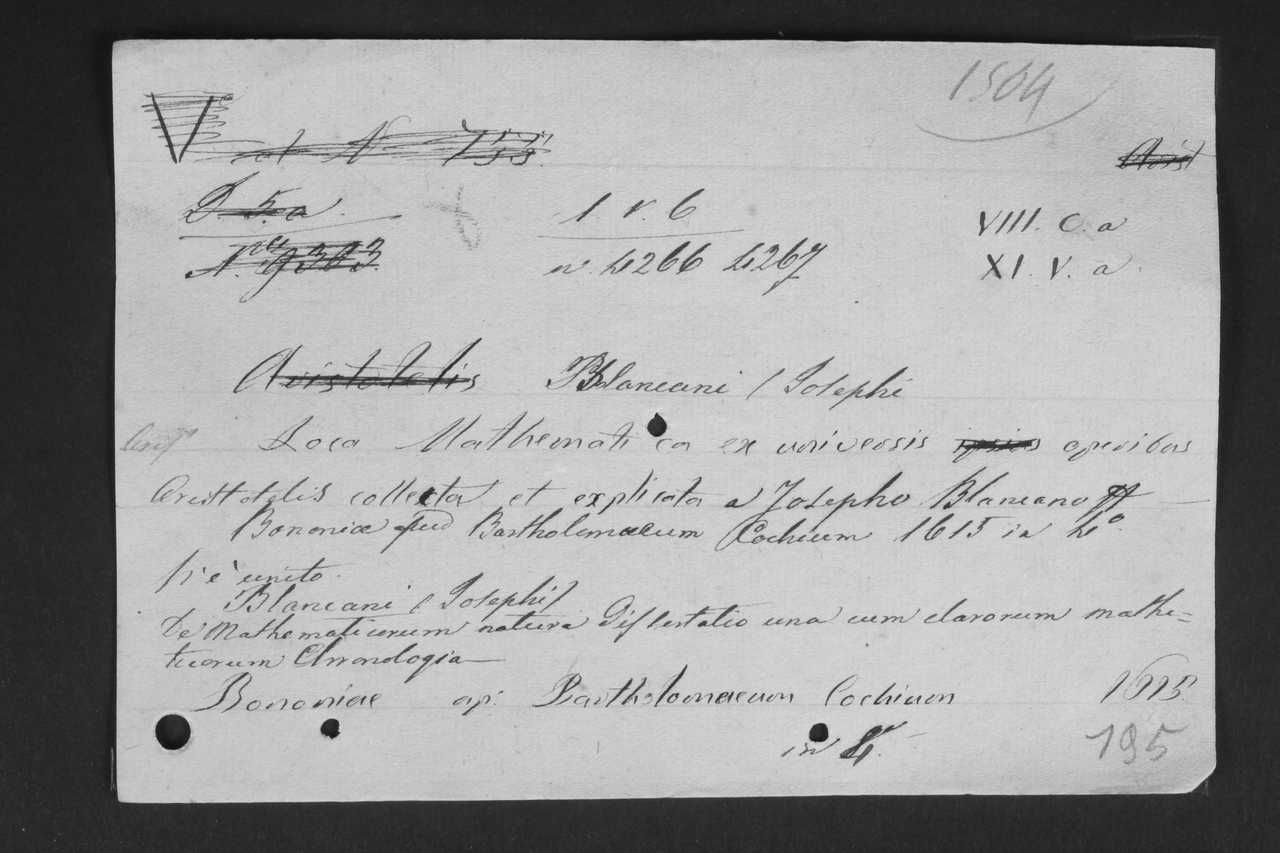 1504
V
N 755
Arist
D. 5. a.
1 v. 6
VIII. C. a
N. 9303
n. 4266 4267
XI. V. a.
Aristotelis Blancani / Josephi
Loca Mathematica ex universis ipsius operibus
Aristotelis collecta et explicata a Josepho Blancano
Bononiae apud Bartholomaeum Cochium 1615 in 4.°
Vi è unito.
Blancani / Josephi /
De Mathematicarum natura Dissertatio una cum clarorum mathe=
ticorum Chronologia
Bononiae ap: Bartholomaeum Cochium 1615.
in 4.°
195